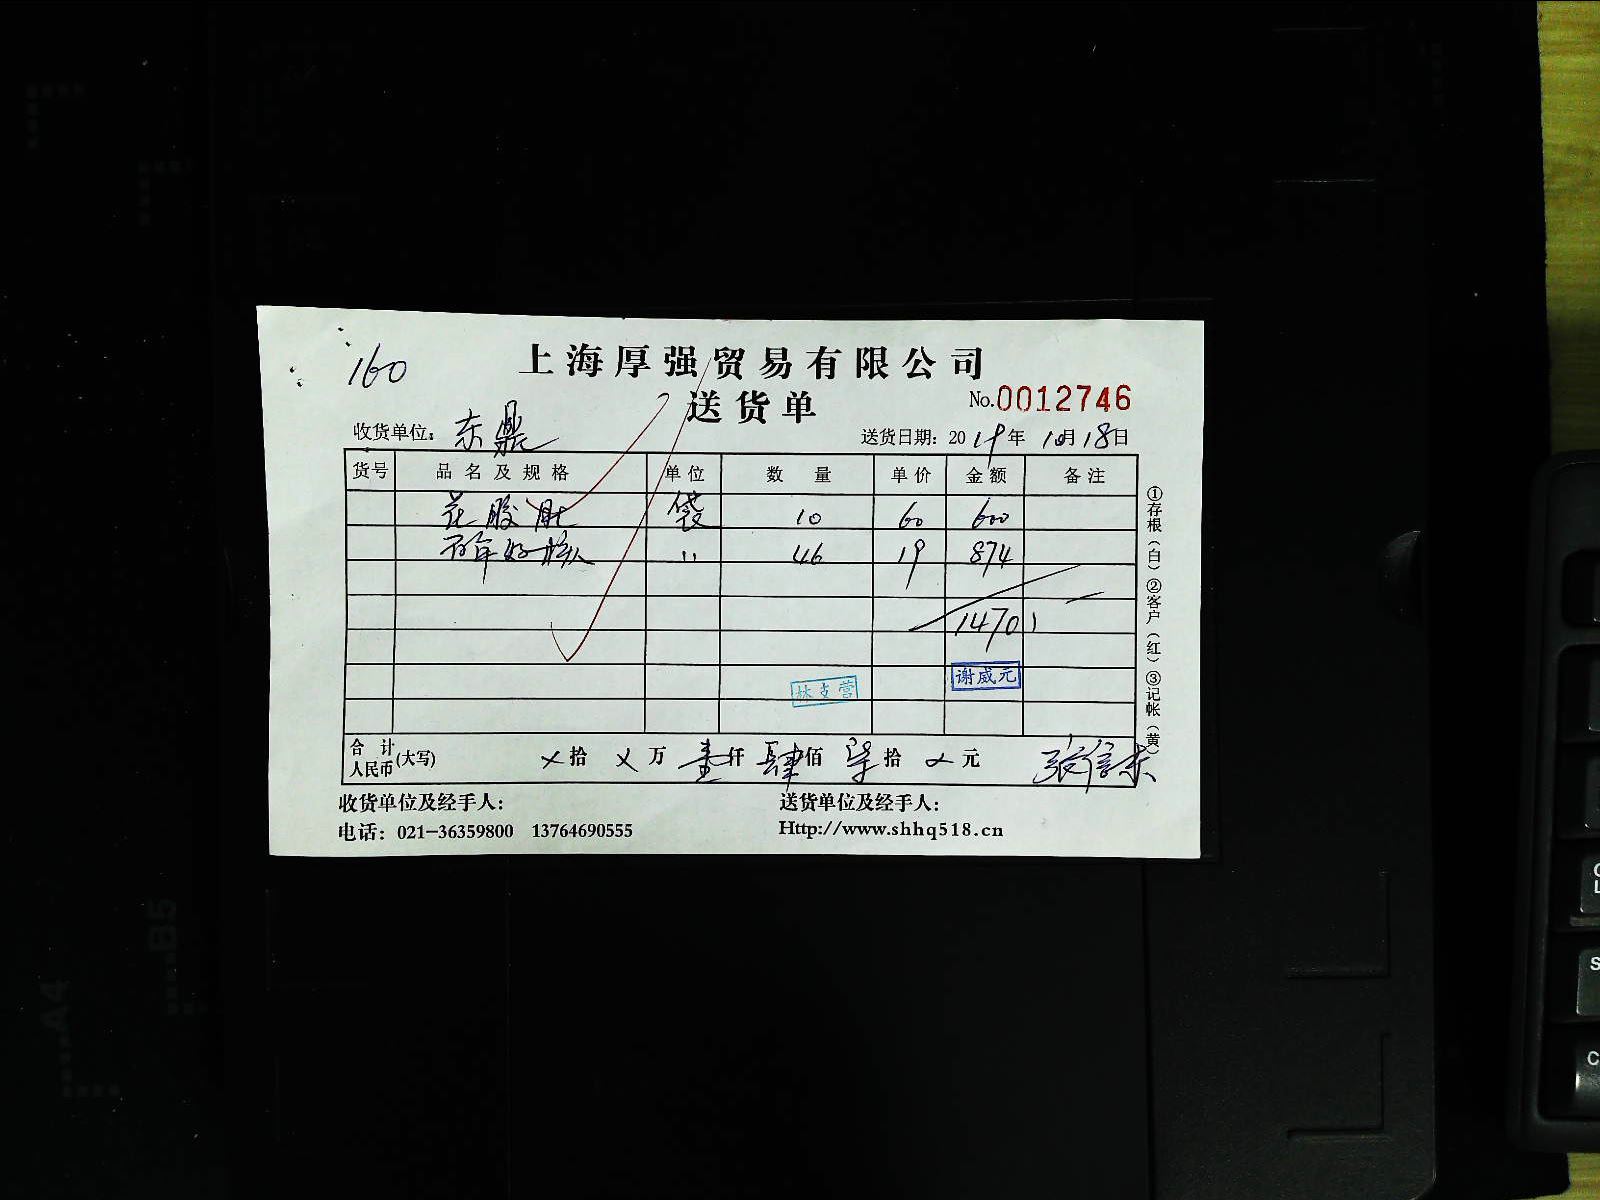 160
上海厚强贸易有限公司
送货单
No.0012746
收货单位: 东鼎
送货日期: 2019年10月18日
货号 品名及规格 单位 数量 单价 金额 备注
花胶肚 袋 10 60 600
百年好 〃 46 19 874
1470
林支营
谢威元
合计人民币(大写) ×拾 ×万 壹仟 肆佰 柒拾 元
张信东
收货单位及经手人: 送货单位及经手人:
电话: 021-36359800 13764690555 Http://www.shhq518.cn
①存根(白)②客户(红)③记帐(黄)
A4
B5